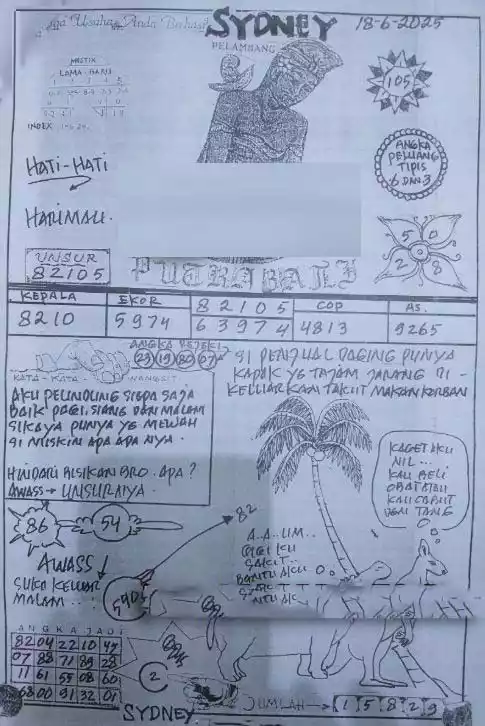 Usaha Anda Berhasil
SYDNEY
18-6-2025
PELAMBANG
MISTIK
LAMA - BARU
INDEX
105
HATI-HATI
HARIMAU.
ANGKA
PELUANG
TIPIS
6 DAN 3
5 0
2 8
UNSUR
82105
PUTRA BALI
KEPALA EKOR 82105 COP AS.
8210 5974 63974 4813 9265
ANGKA REJEKI
23 19 80 07
KATA - KATA WANGSIT
AKU PELINDUNG SIAPA SAJA
BAIK PAGI, SIANG DAN MALAM
SIKAYA PUNYA YG MEWAH
SI MISKIN APA ADA NYA.
HINDARI BISIKAN BRO. APA?
AWASS → UNSURNIYA.
SI PENJUAL DAGING PUNYA
KAPAK YG TAJAM JARANG DI-
KELUARKAN TAKUT MAKAN KORBAN
KAGET AKU
NIL...
KAU BELI
OBAT ATAU
KAU CABUT
TANG
86
54
82
A.A..UM..
GIGI KU
SAKIT..
BANTU AKU
AWASS
SUKA KELUAR
MALAM..
590
ANGKA JADI
82 04 22 10 45
07 88 71 89 28
11 61 55 08 60
68 00 91 32 01
2
SYDNEY
JUMLAH → 1 5 8 2 9